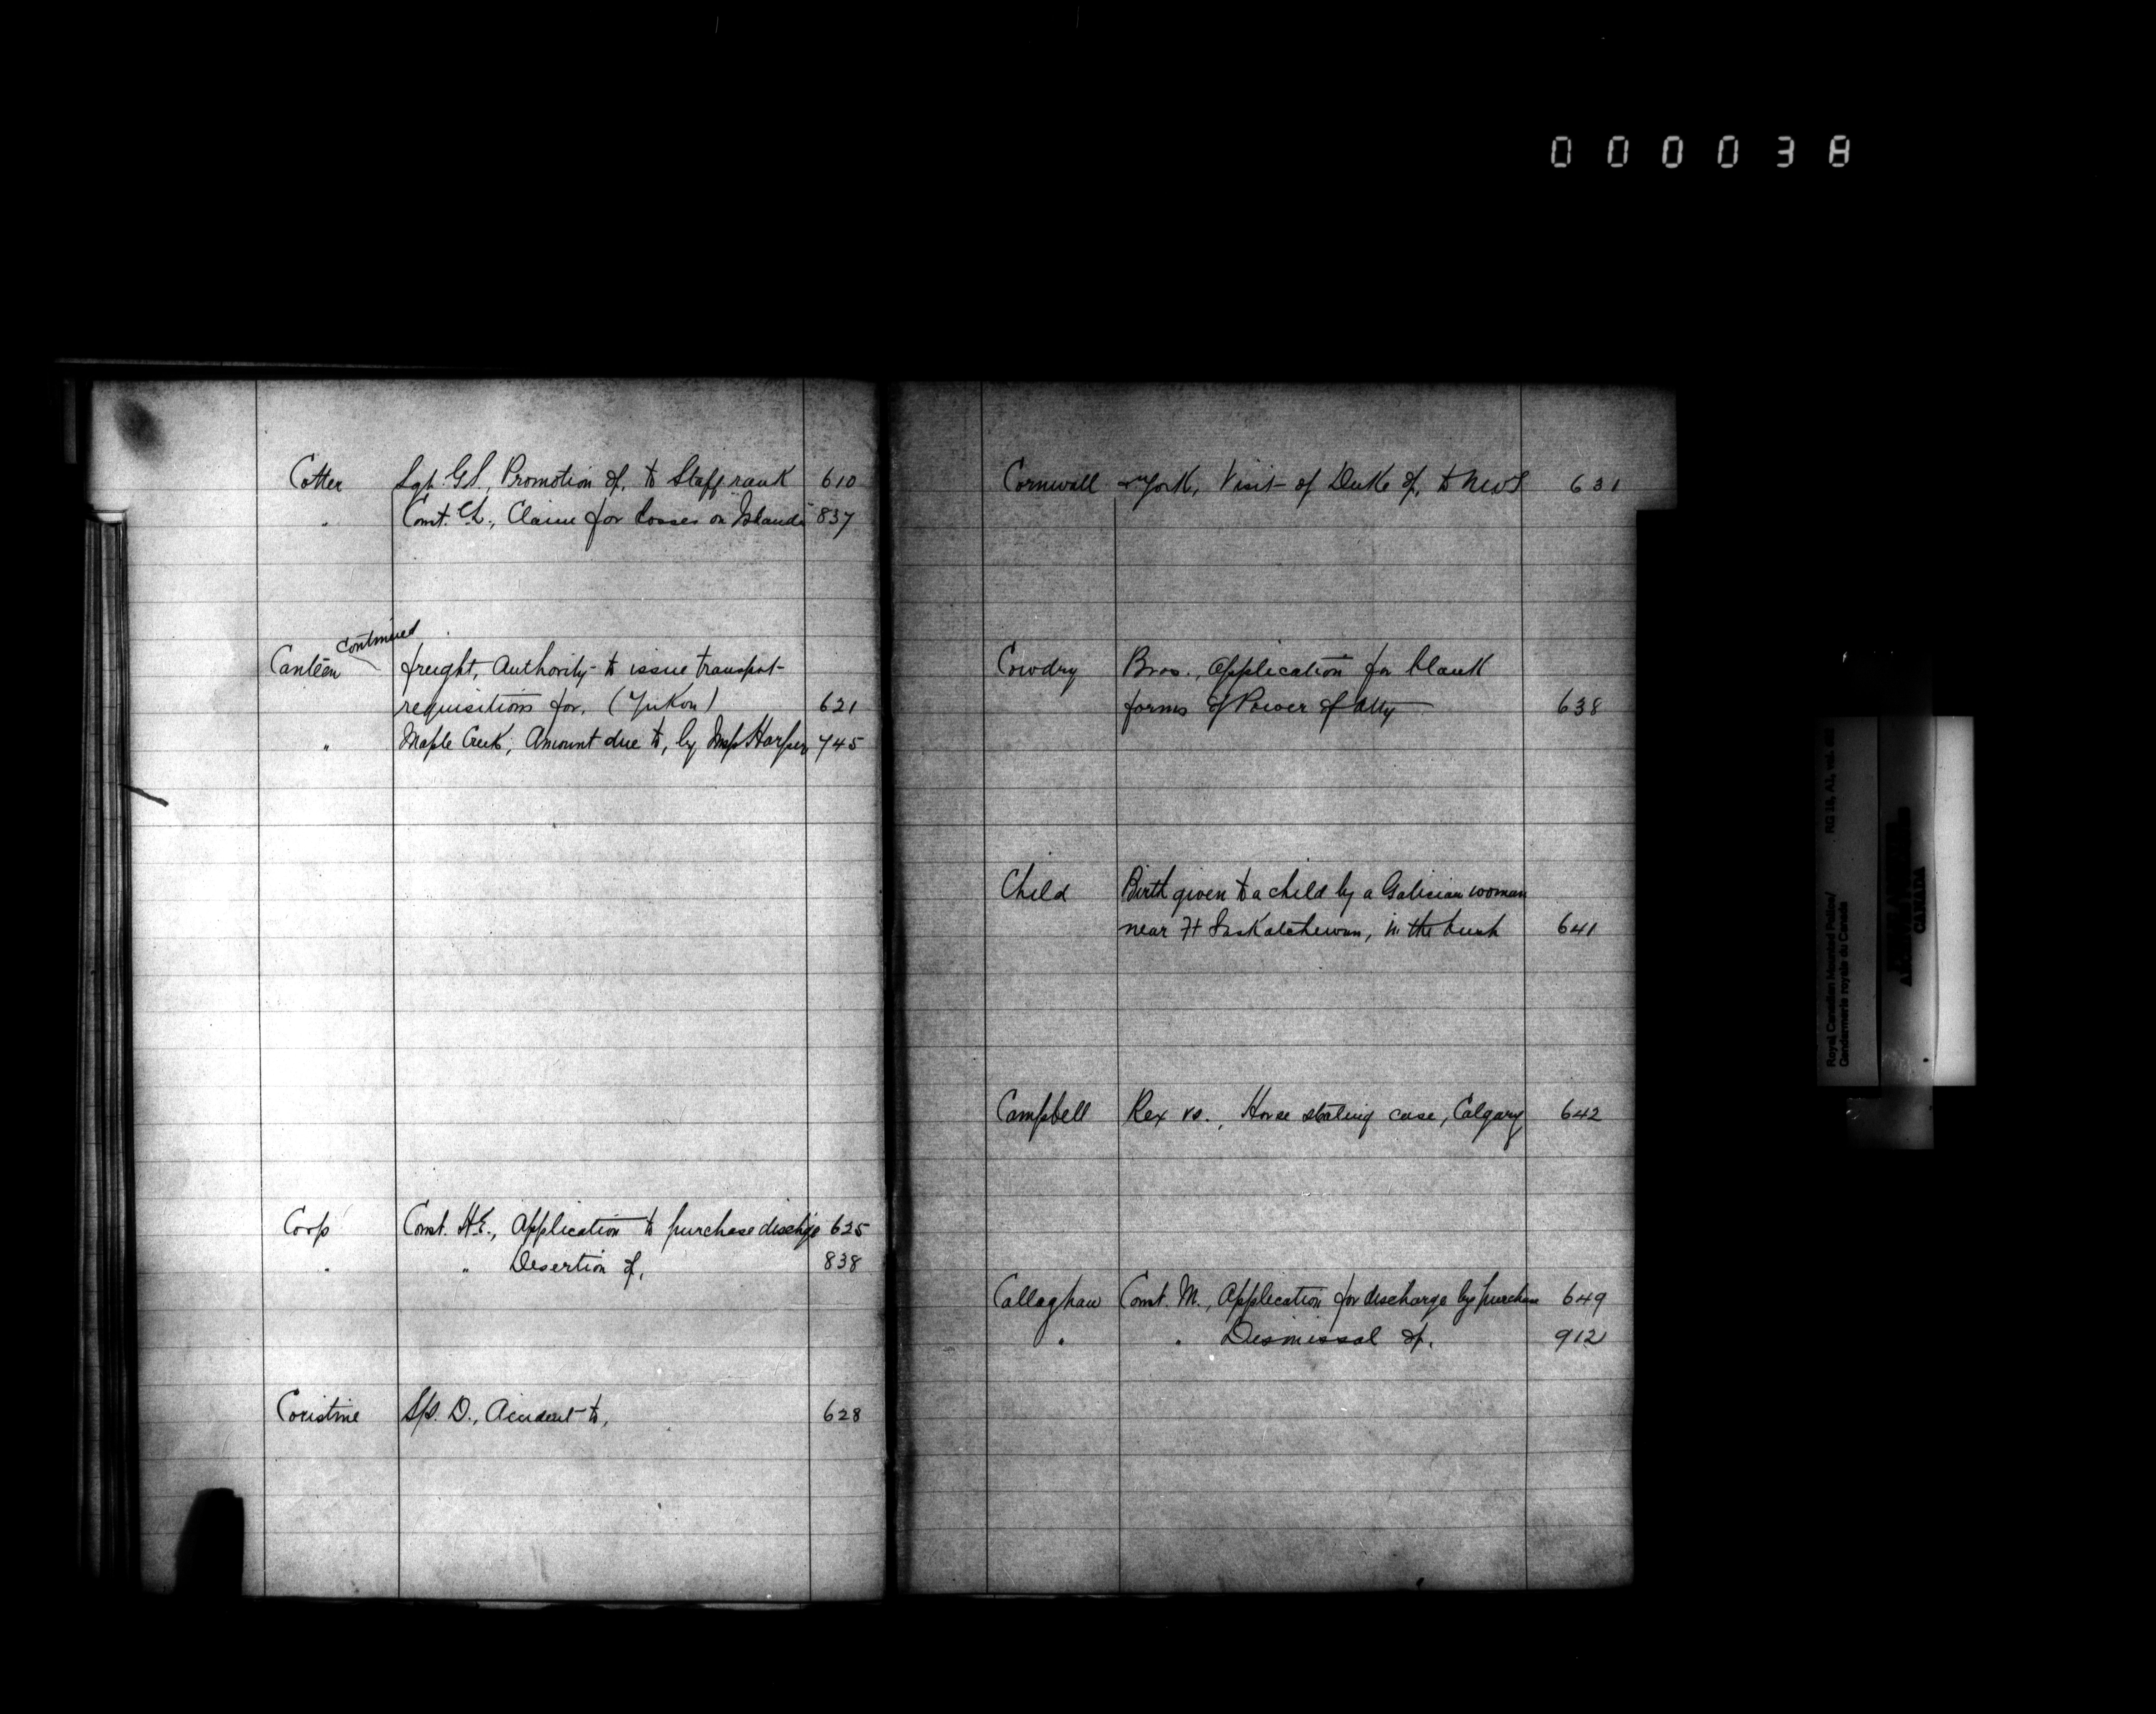 000038
Cotter Sgt. G.S., Promotion of, to Staff rank 610
" Const. Ch., Claim for losses on "Islander" 837
Canteen continued freight, Authority to issue transport
requisitions for, (Yukon) 621
" Maple Creek, Amount due to, by Insp Harper 745
Corp Const. H.E., Application to purchase dischge 625
" " Desertion of, 838
Coristine S/S. D., Accident to, 628
Cornwall & York, Visit of Duke of, to NWT 631
Cowdry Bros., Application for blank
forms of Power of Atty 638
Child Birth given to a child by a Galician woman
near Ft Saskatchewan, in the bush 641
Campbell Rex vs., Horse stealing case, Calgary 642
Callaghan Const. M., Application for discharge by purchase 649
" " Dismissal of, 912
Royal Canadian Mounted Police/ RG 18, A1, vol.
Gendarmerie royale du Canada
CANADA